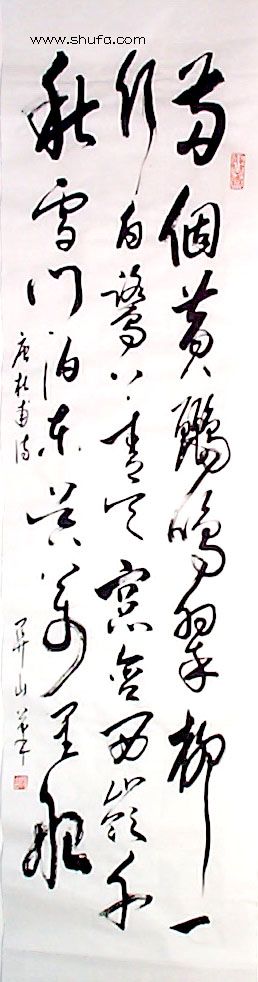 www.shufa.com
兩個黄鸝鳴翠柳一
行白鷺上青天窓含西嶺千
秋雪門泊東吳萬里船
唐杜甫詩